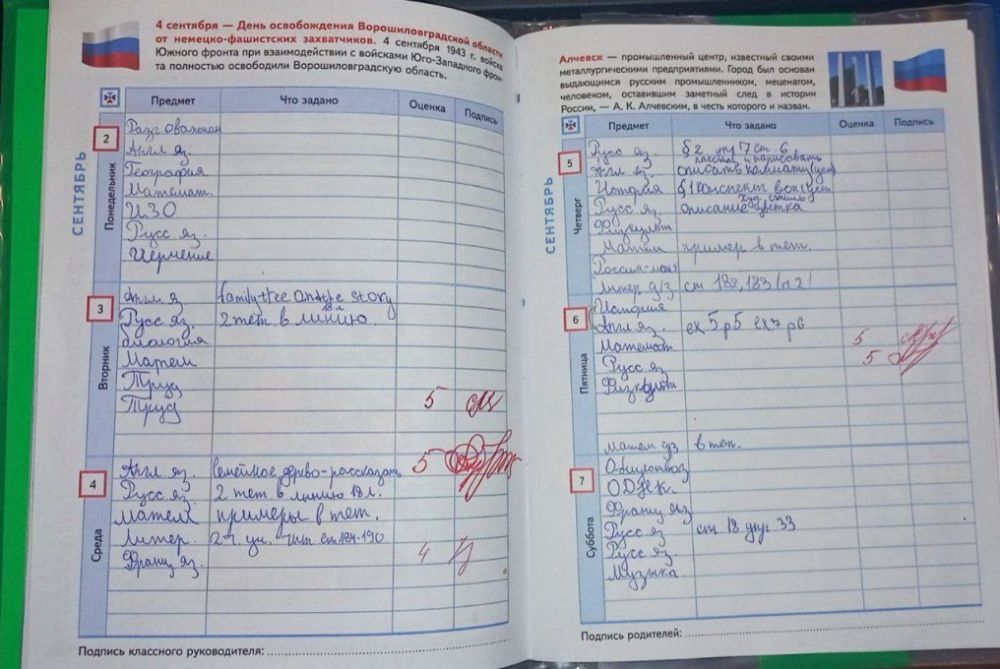 4 сентября — День освобождения Ворошиловградской области
от немецко-фашистских захватчиков. 4 сентября 1943 г. войска
Южного фронта при взаимодействии с войсками Юго-Западного фрон-
та полностью освободили Ворошиловградскую область.
Предмет Что задано Оценка Подпись
СЕНТЯБРЬ
2
Понедельник
Разговажном
Англ яз.
География
Математ.
ИЗО
Русс яз.
Черчение
3
Вторник
Англ яз family tree and the story
18 л
Русс яз. 2 тет. в линию.
биология
Матем
Труд
Труд 5
4
Среда
Англ яз. семейное дерво-рассказать 5
Русс яз. 2 тет в линию 18 л.
матем примеры в тет.
Литер. 2 ч. уч. чит ст 184-190
Франц яз. 4
Подпись классного руководителя:
Алчевск — промышленный центр, известный своими
металлургическими предприятиями. Город был основан
выдающимся русским промышленником, меценатом,
человеком, оставившим заметный след в истории
России, — А. К. Алчевским, в честь которого и назван.
Предмет Что задано Оценка Подпись
СЕНТЯБРЬ
5
Четверг
Русс яз. § 2 упр 7 ст 6
и нарисовать
Англ яз. описать комнату
История § 1 конспект
худ. стиль
Русс яз описание цветка
Физкульт
Матем пример в тет.
Россия-мои
Литер д/з ст 182, 183 /п 2/
6
Пятница
История
Англ яз. ex 5 p 5 ex 7 p 6
Математ 5
Русс яз. 5
Физкульт
матем дз в тет.
7
Суббота
Обществоз
ОДНК.
Франц яз
Русс яз ст 18 упр 33
Русс яз.
Музыка
Подпись родителей: